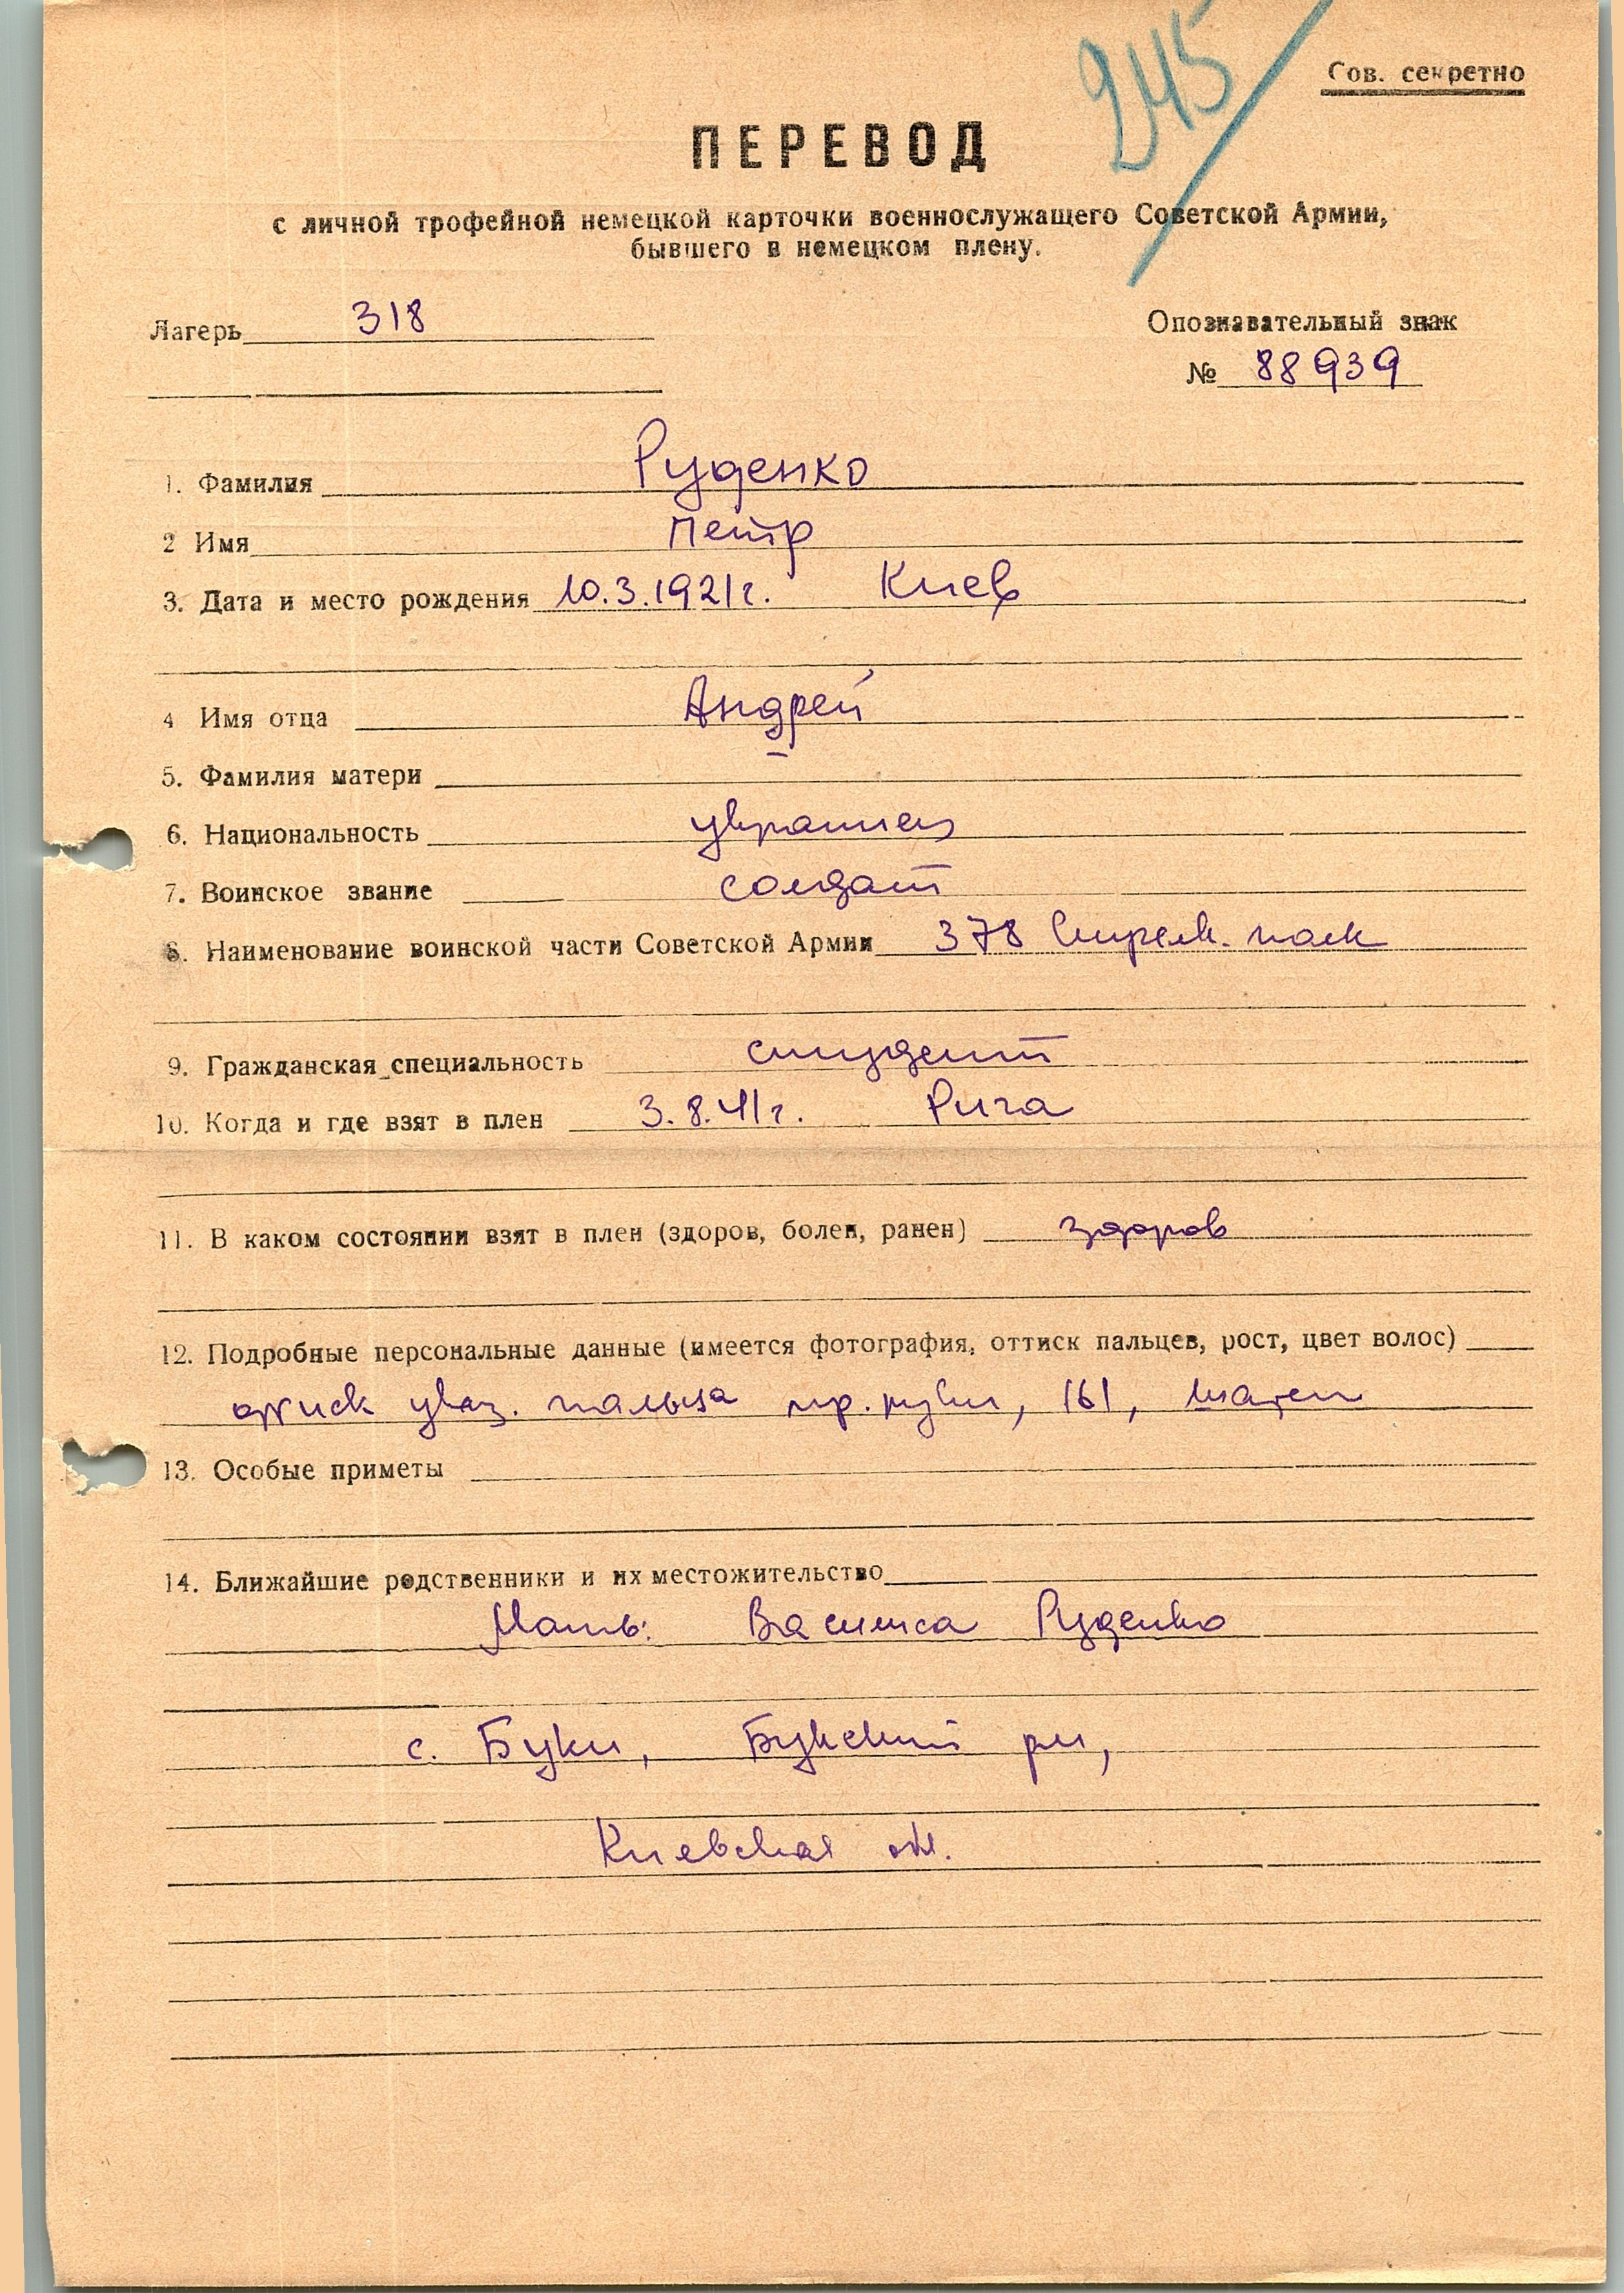 245
Сов. секретно
ПЕРЕВОД
с личной трофейной немецкой карточки военнослужащего Советской Армии,
бывшего в немецком плену.
Лагерь 318
Опознавательный знак
№ 88939
1. Фамилия Руденко
2 Имя Петр
3. Дата и место рождения 10.3.1921г. Киев
4 Имя отца Андрей
5. Фамилия матери –
6. Национальность украинец
7. Воинское звание солдат
8. Наименование воинской части Советской Армии 378 Стрелк. полк
9. Гражданская специальность студент
10. Когда и где взят в плен 3.8.41г. Рига
11. В каком состоянии взят в плен (здоров, болен, ранен) здоров
12. Подробные персональные данные (имеется фотография, оттиск пальцев, рост, цвет волос)
указ. пальца пр. руки, 161, шатен
13. Особые приметы
14. Ближайшие родственники и их местожительство
Мать: Василиса Руденко
с. Буки, Букский рн,
Киевская обл.